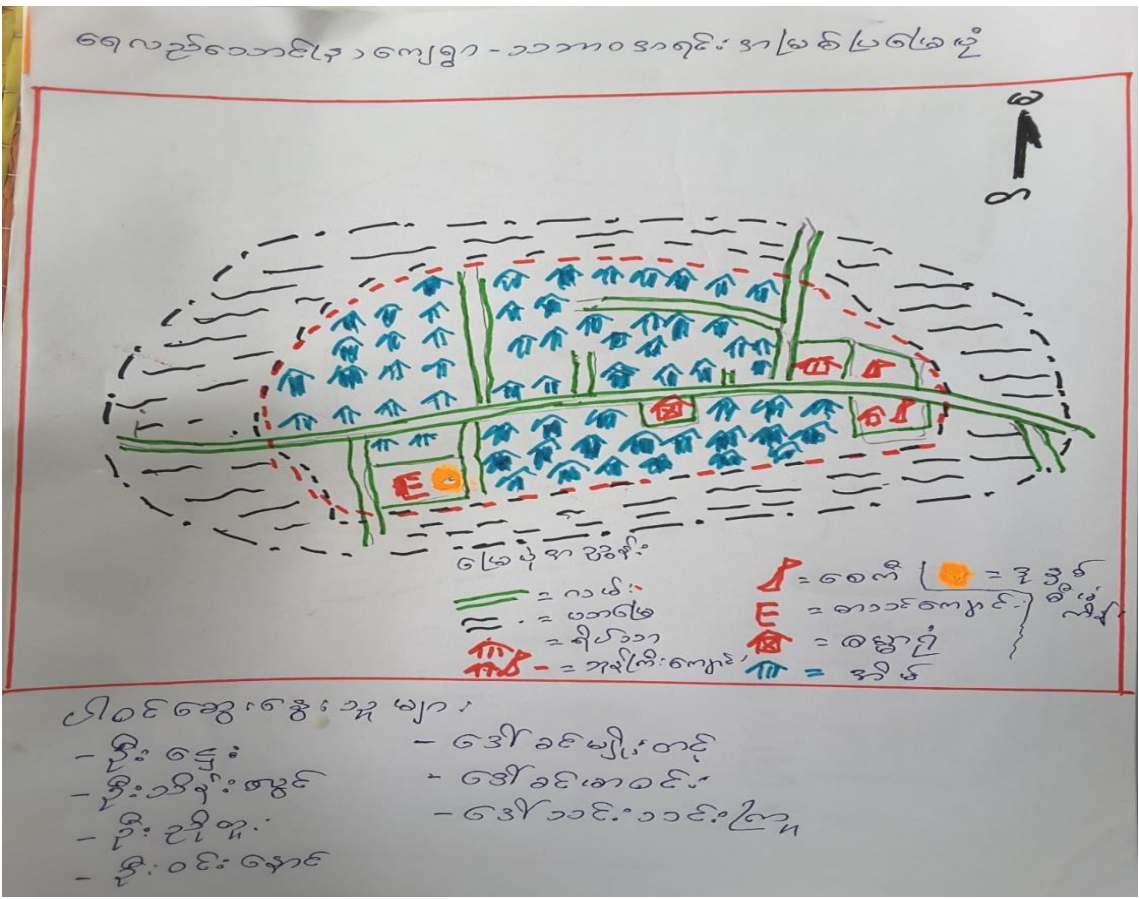 ရေလည်သောင်(န)ကျေးရွာ - သဘာဝအရင်းအမြစ်ပြမြေပုံ
မြေပုံအညွှန်း
= လမ်း
= ယာမြေ
= ရိပ်သာ
= ဘုန်းကြီးကျောင်း
= စေတီ
E = စာသင်ကျောင်း
= ဓမ္မာရုံ
= အိမ်
E
ပါဝင်ဆွေးနွေးသူများ
- ဦးဌေး
- ဦးသိန်းလွင်
- ဦးညိုထူး
- ဦးဝင်းနောင်
- ဒေါ်ခင်မျိုးတင့်
- ဒေါ်ခင်မာဝင်း
- ဒေါ်သင်းသင်းကြူ